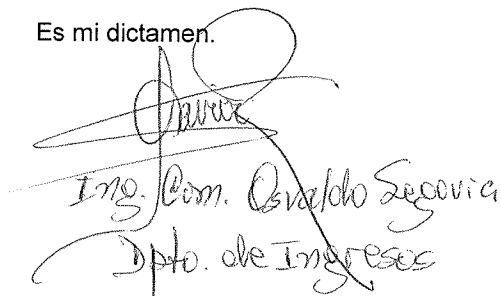 Es mi dictamen.
Ing. Com. Osvaldo Segovia
Dpto. de Ingresos